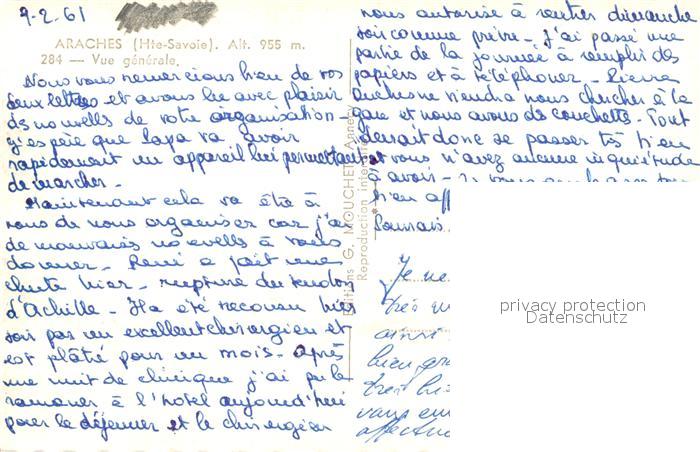 9-2.61
ARACHES (Hte-Savoie). Alt. 955 m.
284 — Vue générale.
Nous vous remercions bien de vos
deux lettres et avons lu avec plaisir
des nouvelles de votre organisation -
j'espère que Papa va avoir
rapidement un appareil lui permettant
de marcher -
Maintenant cela va être à
nous de nous organiser car j'ai
de mauvaises nouvelles à vous
donner - René a fait une
chute hier - rupture du tendon
d'Achille - Il a été reconnu hier
soir par un excellent chirurgien et
est plâtré pour un mois - après
une nuit de clinique j'ai pu le
ramener à l'hôtel aujourd'hui
pour le déjeuner et le chirurgien
nous autorise à rentrer dimanche
soir comme prévu - J'ai passé une
partie de la journée à remplir des
papiers et à téléphoner - Pierre
viendra nous chercher à la
gare et nous avons des couchettes - Tout
devrait donc se passer très bien
et vous n'avez aucune inquiétude
à avoir - Je vous embrasse
bien aff
Editions G. MOUCHET, Annecy
Reproduction interdite
Je ne
très
ainsi
bien
très
vous em
affectue
privacy protection
Datenschutz